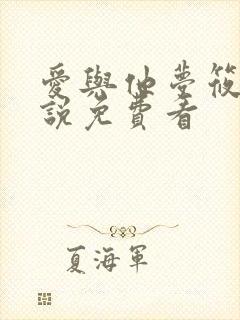 愛與仙夢筱
說免費看
夏海軍